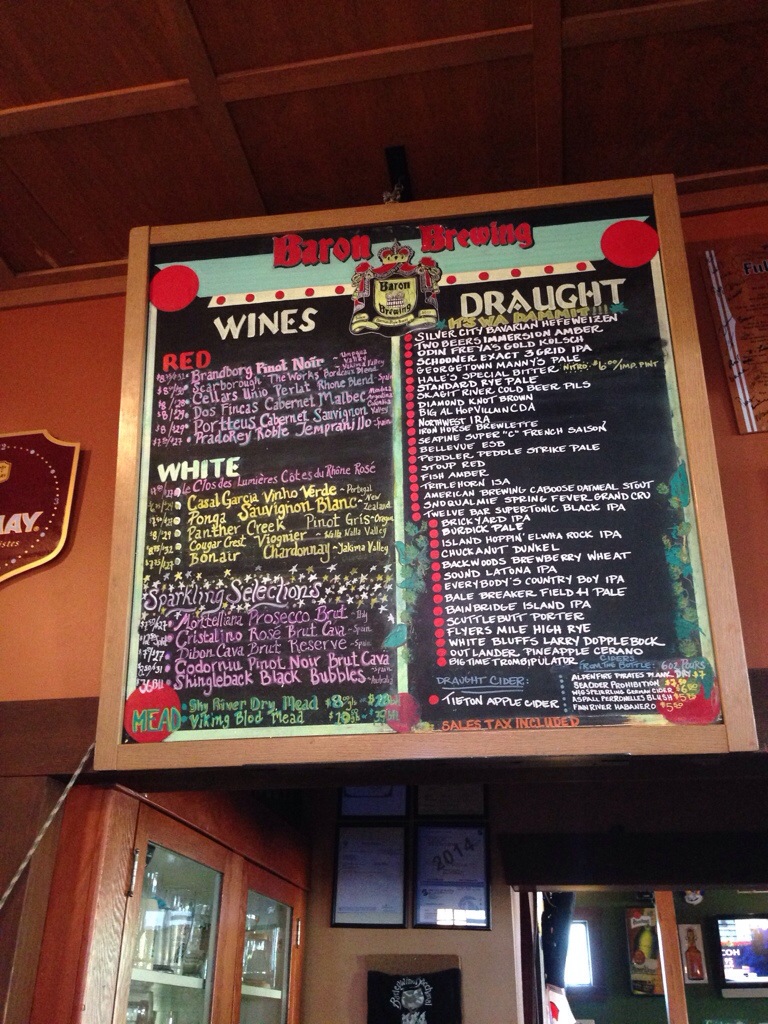 Baron Brewing
Baron
Brewing
WINES
RED
Brandborg Pinot Noir ~ Umpqua Valley
Scarborough The Works Bordeaux Blend
Cellars Unio Perlat Rhone Blend - Spain
Dos Fincas Cabernet Malbec
Portteus Cabernet Sauvignon
PradoRey Roble Tempranillo - Spain
WHITE
Le Clos des Lumières Côtes du Rhône Rosé
Casal Garcia Vinho Verde - Portugal
Ponga Sauvignon Blanc - New Zealand
Panther Creek Pinot Gris - Oregon
Cougar Crest Viognier - Walla Walla Valley
Bonair Chardonnay - Yakima Valley
Sparkling Selections
Montelliana Prosecco Brut
Cristalino Rosé Brut Cava - Spain
Dibon Cava Brut Reserve - Spain
Codorniu Pinot Noir Brut Cava
Shingleback Black Bubbles - Australia
MEAD
Sky River Dry Mead
Viking Blod Mead
DRAUGHT
IT'S WA DAMMIT!!!
SILVER CITY BAVARIAN HEFEWEIZEN
TWO BEERS IMMERSION AMBER
ODIN FREYA'S GOLD KOLSCH
SCHOONER EXACT 3 GRID IPA
GEORGETOWN MANNY'S PALE
HALE'S SPECIAL BITTER NITRO $6.00/IMP. PINT
STANDARD RYE PALE
SKAGIT RIVER COLD BEER PILS
DIAMOND KNOT BROWN
BIG AL HOPVILLAIN CDA
NORTHWEST IRA
IRON HORSE BREWLETTE
SEAPINE SUPER "C" FRENCH SAISON
BELLEVUE ESB
PEDDLER PEDDLE STRIKE PALE
STOUP RED
FISH AMBER
TRIPLEHORN ISA
AMERICAN BREWING CABOOSE OATMEAL STOUT
SNOQUALMIE SPRING FEVER GRAND CRU
TWELVE BAR SUPERTONIC BLACK IPA
BRICKYARD IPA
BURDICK PALE
ISLAND HOPPIN' ELWHA ROCK IPA
CHUCKANUT DUNKEL
BACKWOODS BREWBERRY WHEAT
SOUND LATONA IPA
EVERYBODY'S COUNTRY BOY IPA
BALE BREAKER FIELD 41 PALE
BAINBRIDGE ISLAND IPA
SCUTTLEBUTT PORTER
FLYERS MILE HIGH RYE
WHITE BLUFFS LARRY DOPPLEBOCK
OUTLANDER PINEAPPLE CERANO
BIG TIME TROMBIPULATOR
DRAUGHT CIDER:
TIETON APPLE CIDER
CIDERS
FROM THE BOTTLE: 6oz POURS
ALPENFIRE PIRATES PLANK DRY $7
SEACIDER PROHIBITION
SPEIERLING GERMAN CIDER
ASPALL PERRONELLES BLUSH
FINN RIVER HABANERO
SALES TAX INCLUDED
2014